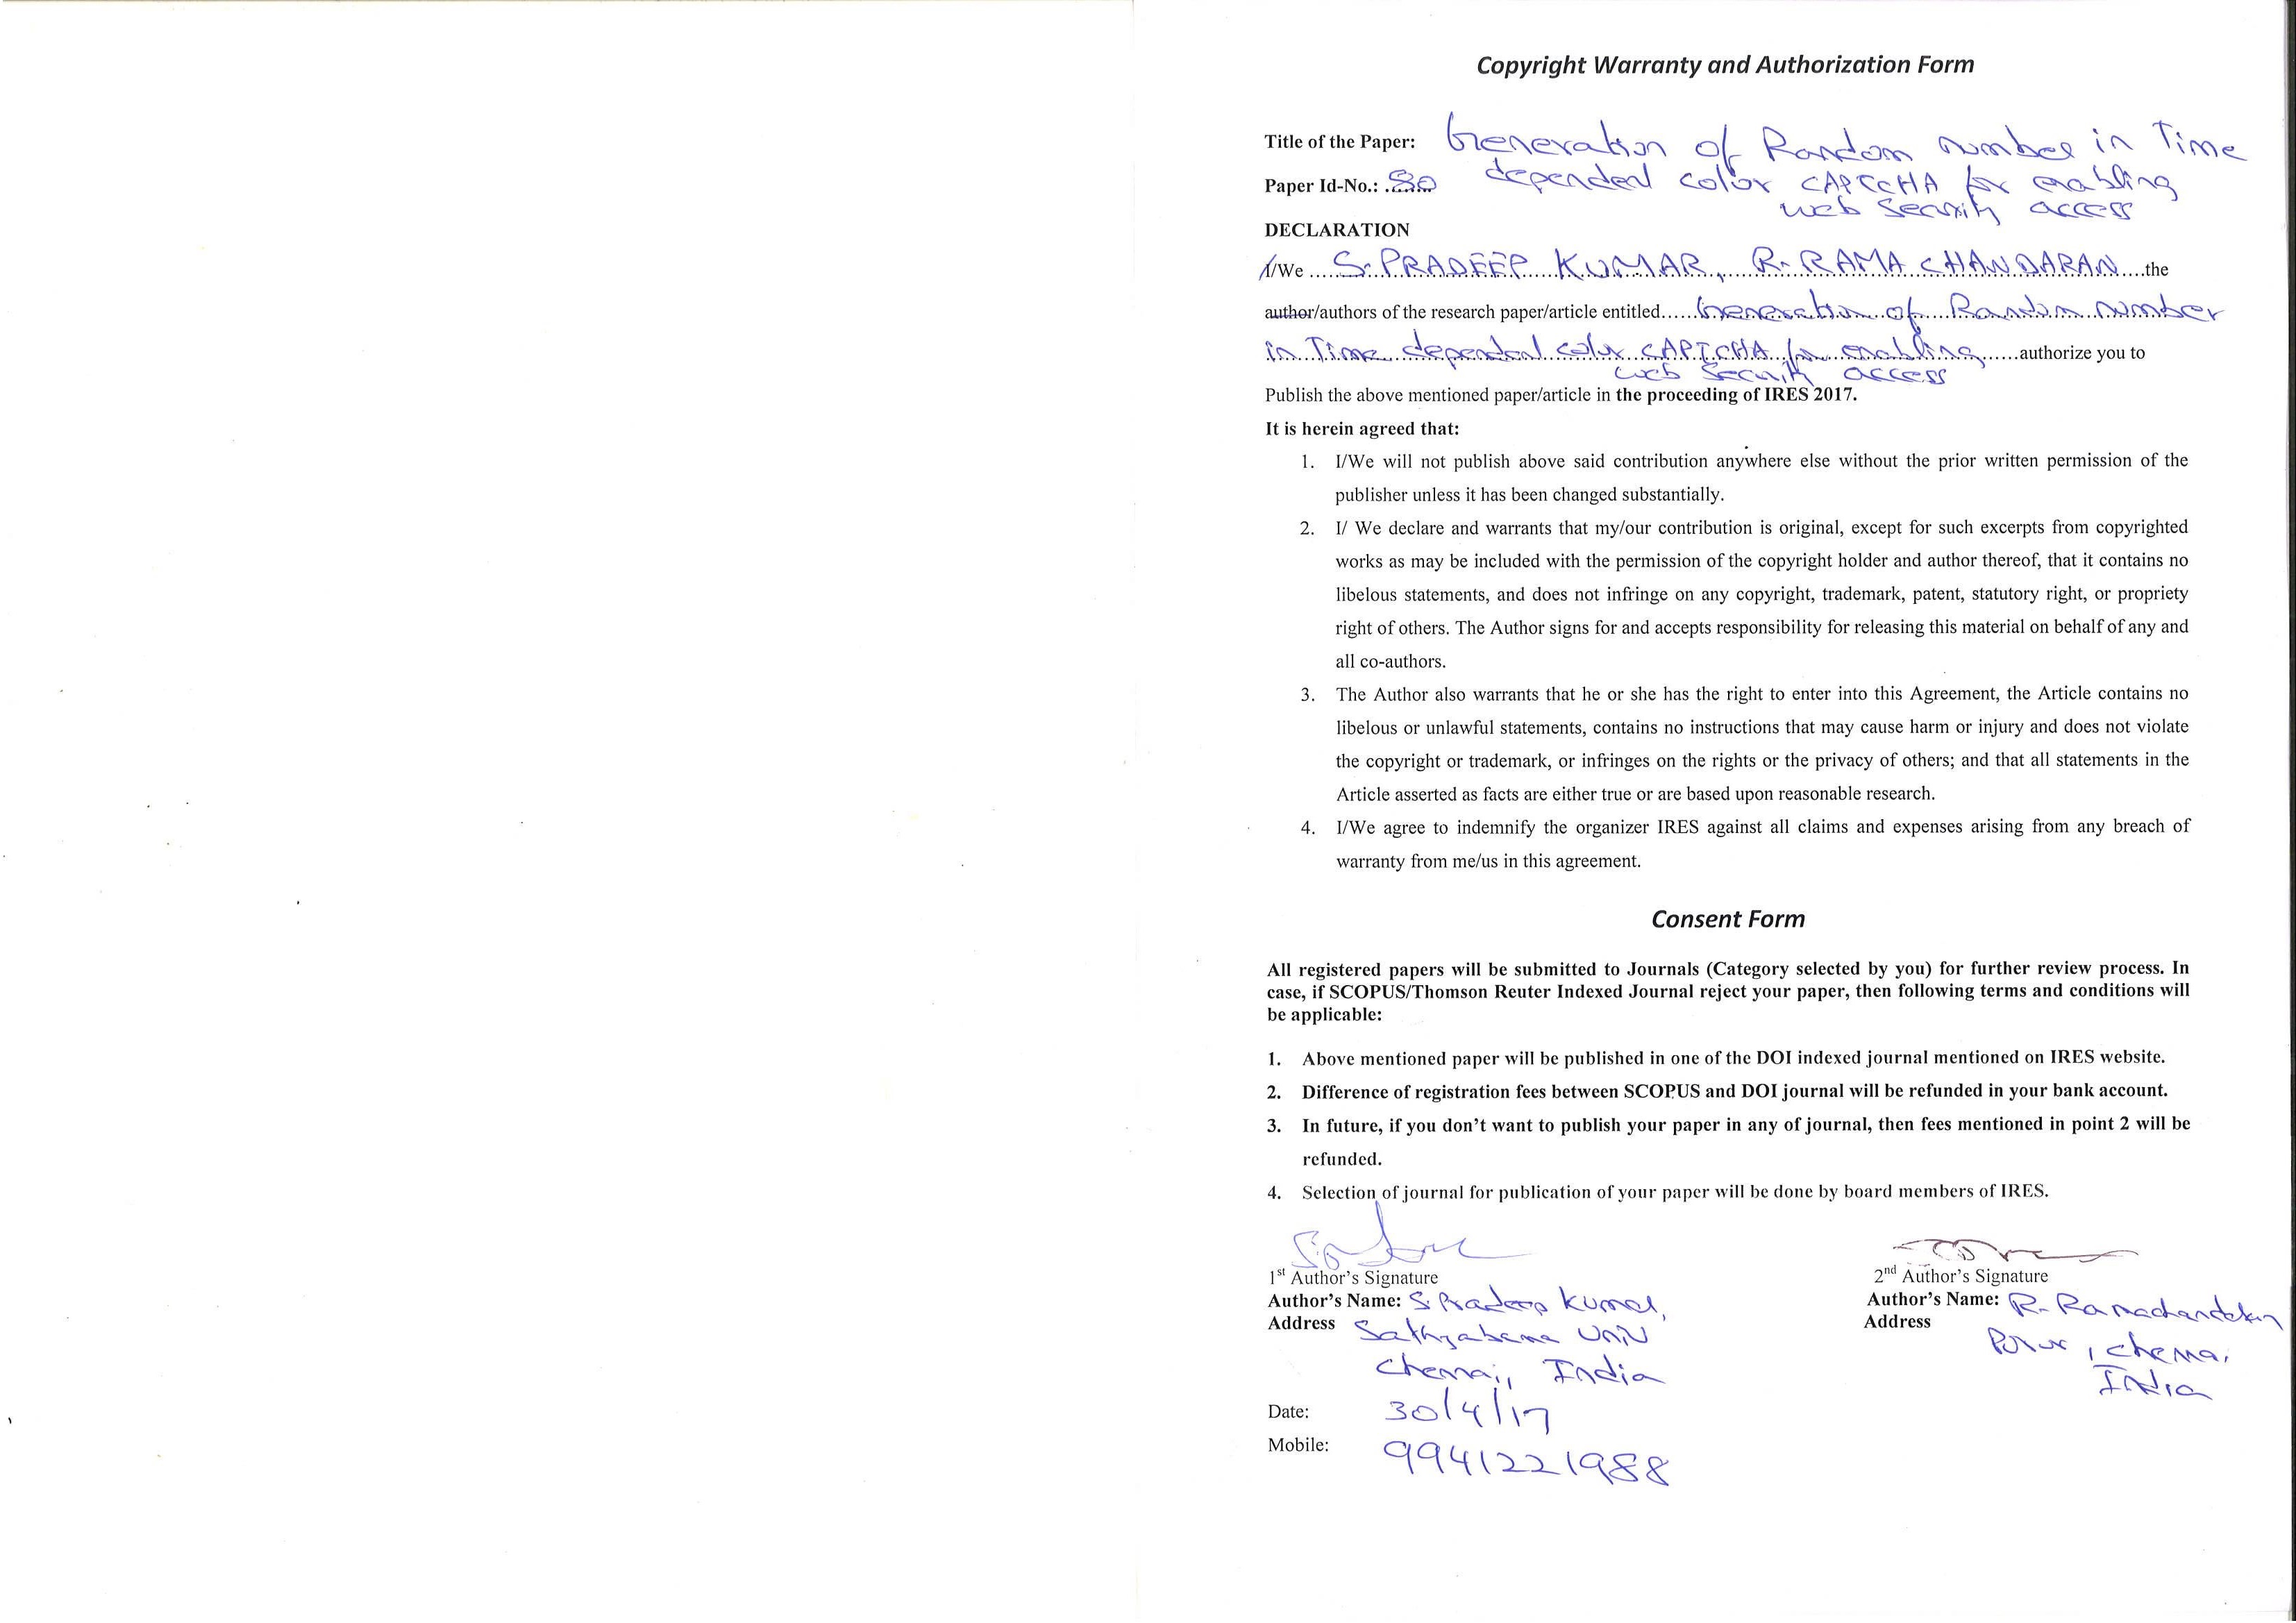 Copyright Warranty and Authorization Form
Title of the Paper: Generation of Random number in Time
Paper Id-No.: 80 dependent color CAPTCHA for enabling
web security access
DECLARATION
I/We S. PRADEEP KUMAR, R. RAMA CHANDARAN the
author/authors of the research paper/article entitled Generation of Random number
in Time dependent color CAPTCHA for enabling authorize you to
web security access
Publish the above mentioned paper/article in the proceeding of IRES 2017.
It is herein agreed that:
1. I/We will not publish above said contribution anywhere else without the prior written permission of the
publisher unless it has been changed substantially.
2. I/ We declare and warrants that my/our contribution is original, except for such excerpts from copyrighted
works as may be included with the permission of the copyright holder and author thereof, that it contains no
libelous statements, and does not infringe on any copyright, trademark, patent, statutory right, or propriety
right of others. The Author signs for and accepts responsibility for releasing this material on behalf of any and
all co-authors.
3. The Author also warrants that he or she has the right to enter into this Agreement, the Article contains no
libelous or unlawful statements, contains no instructions that may cause harm or injury and does not violate
the copyright or trademark, or infringes on the rights or the privacy of others; and that all statements in the
Article asserted as facts are either true or are based upon reasonable research.
4. I/We agree to indemnify the organizer IRES against all claims and expenses arising from any breach of
warranty from me/us in this agreement.
Consent Form
All registered papers will be submitted to Journals (Category selected by you) for further review process. In
case, if SCOPUS/Thomson Reuter Indexed Journal reject your paper, then following terms and conditions will
be applicable:
1. Above mentioned paper will be published in one of the DOI indexed journal mentioned on IRES website.
2. Difference of registration fees between SCOPUS and DOI journal will be refunded in your bank account.
3. In future, if you don't want to publish your paper in any of journal, then fees mentioned in point 2 will be
refunded.
4. Selection of journal for publication of your paper will be done by board members of IRES.
1st Author's Signature
Author's Name: S. Pradeep Kumar,
Address Sathyabama Univ
Chennai, India
Date: 30/4/17
Mobile: 9941221988
2nd Author's Signature
Author's Name: R. Ramachandran
Address Porur, Chennai
India